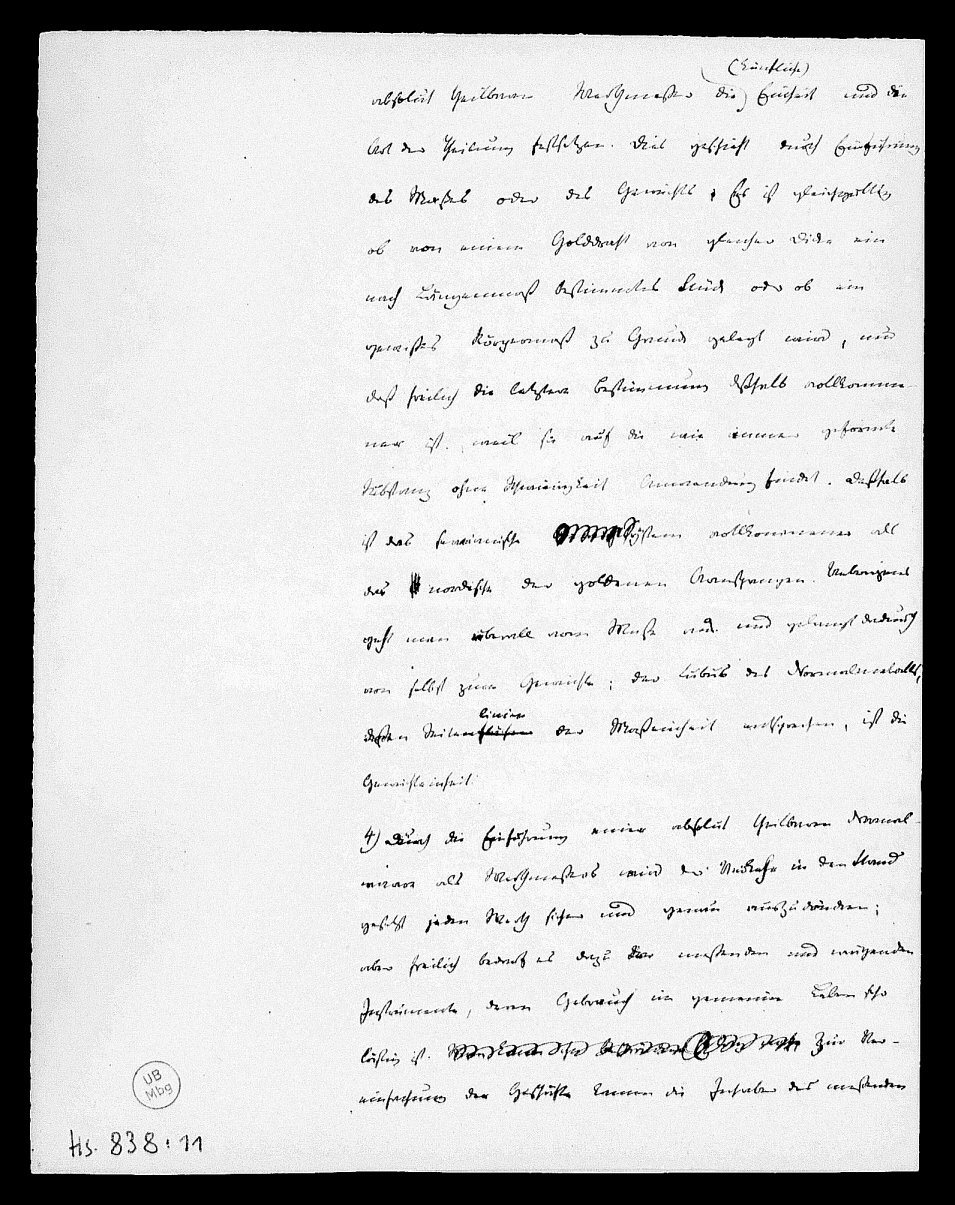 (künstliche)
absolut theilbaren Werthmesser die Einheit und die
Art der Theilung festsetzen. Dies geschieht durch Einführung
des Maßes oder des Gewichts; Es ist gleichgültig
ob von einem Golddraht von gleicher Dicke ein
nach Längenmaß bestimmtes Stück oder ob ein
gewisses Körpermaß zu Grunde gelegt wird, nur
daß freilich die letztere Bestimmung deßhalb vollkomme-
ner ist, weil sie auf die wie immer geformte
Substanz ohne Schwierigkeit Anwendung findet. Deßhalb
ist das System vollkommener als
das nordische der goldenen Armspangen. Uebrigens
geht man überall vom Maße aus und gelangt dadurch
von selbst zum Gewichte; der Cubus des Normalmetalls,
linien
dessen Seitenflächen der Maßeinheit entsprechen, ist die
Gewichteinheit.
4) Durch die Einführung einer absolut theilbaren Normal-
waare als Werthmessers wird der Verkehr in den Stand
gesetzt jeden Werth sicher und genau auszudrücken;
aber freilich bedarf es dazu der messenden und wägenden
Instrumente, deren Gebrauch im gemeinen Leben sehr
lästig ist. Zur Ver-
einfachung der Geschäfte kann die Inhaber des messenden
UB
Mbg
Hs. 838:11